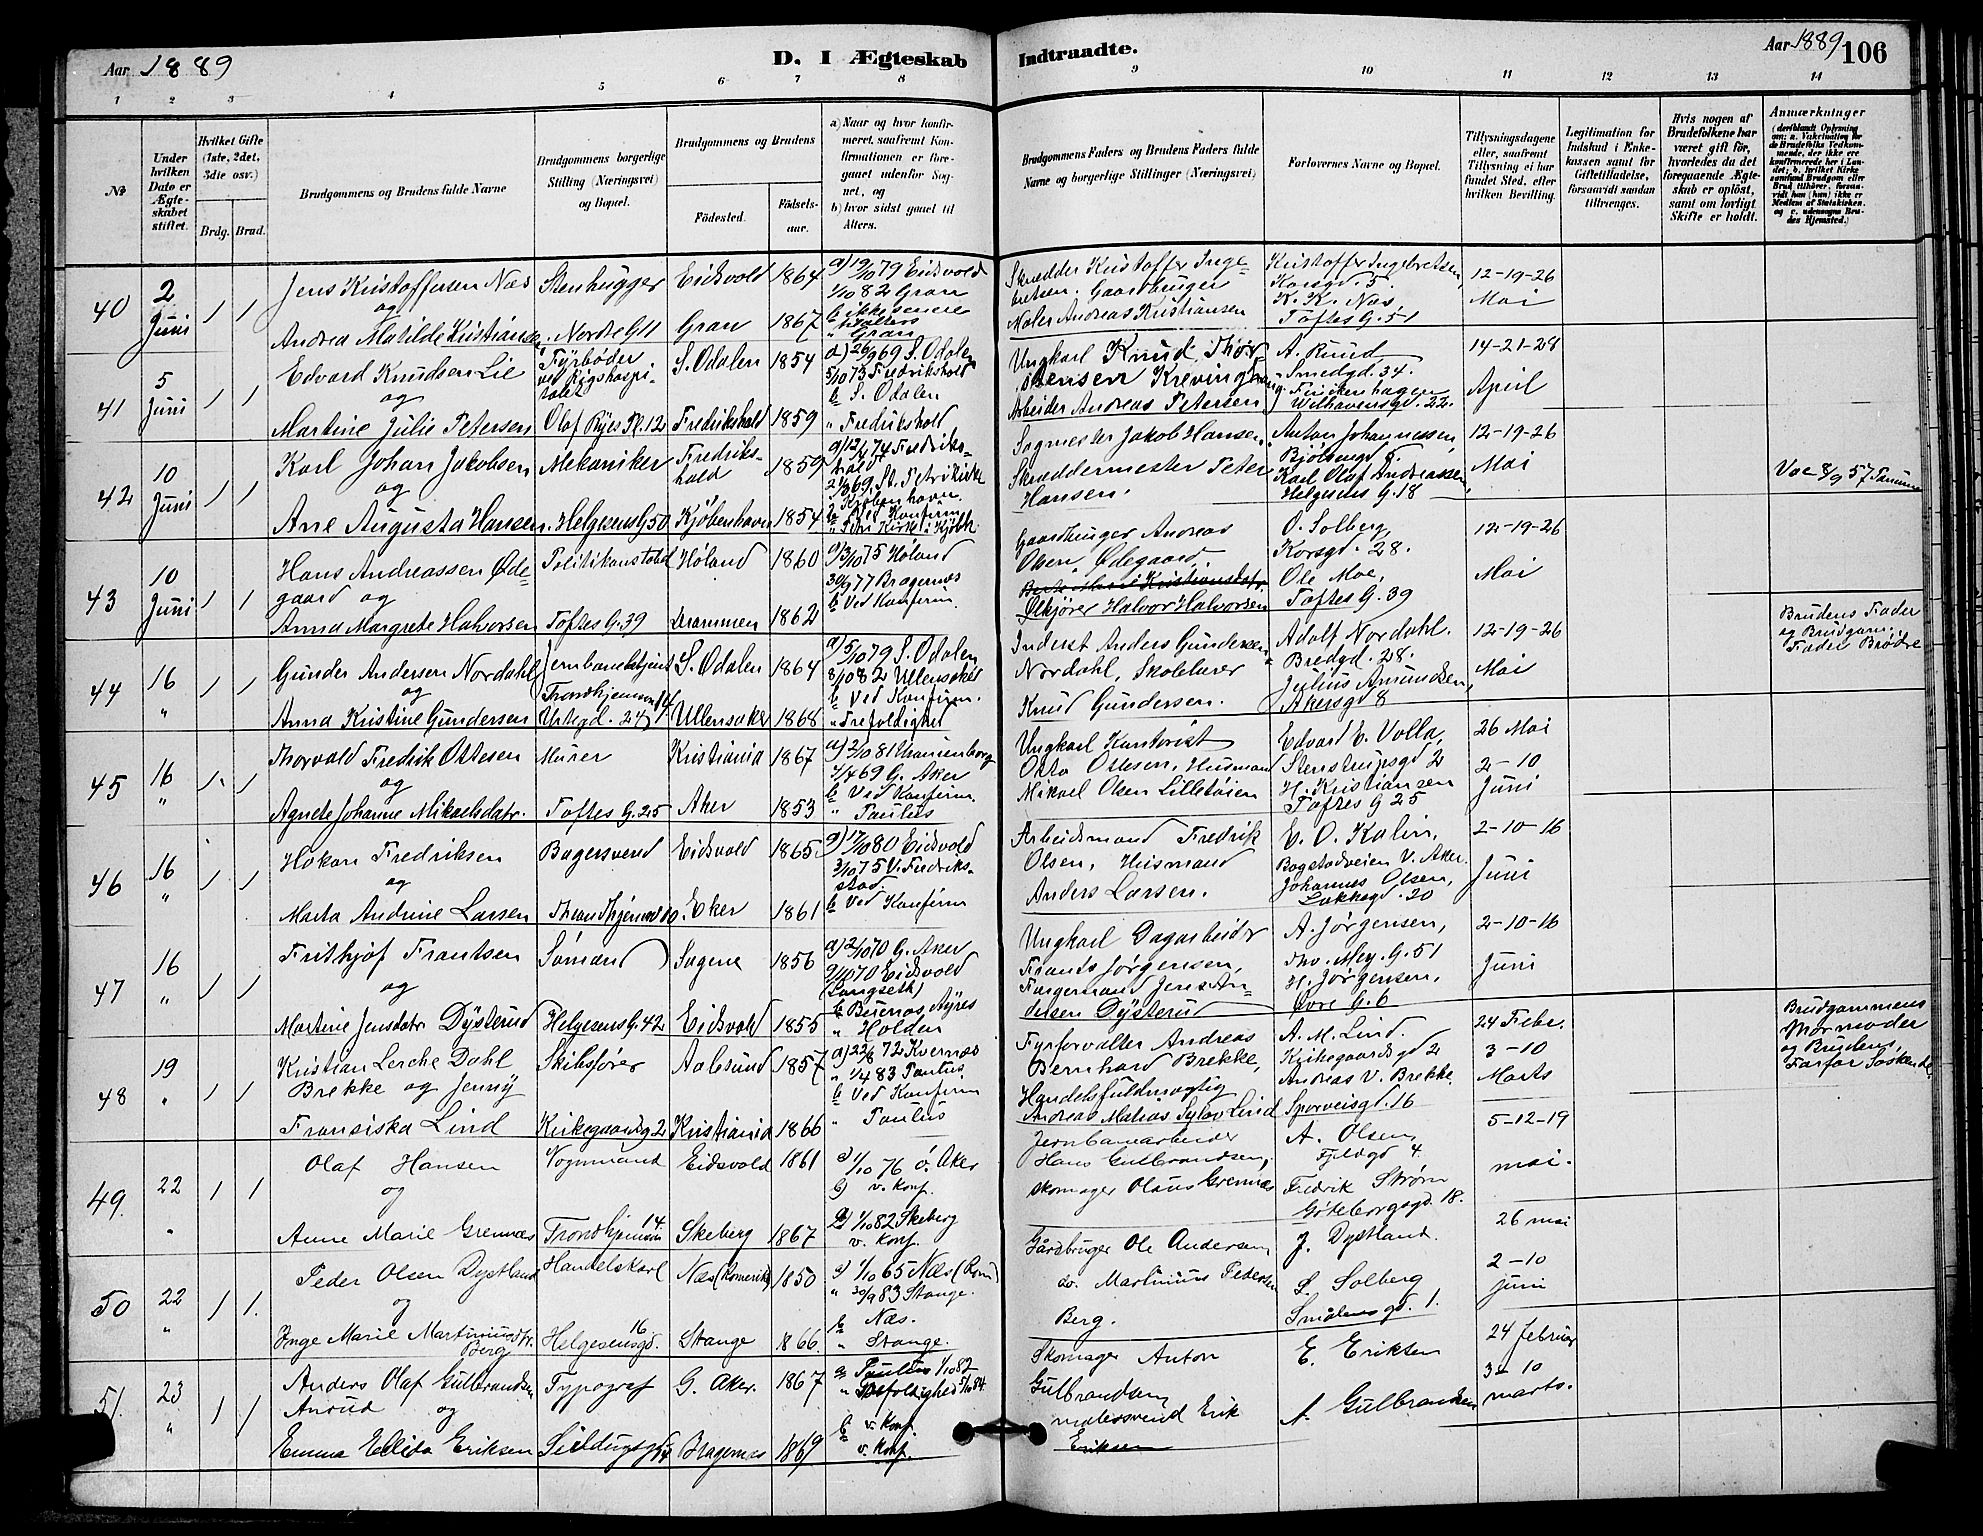 Aar 1889
D. I Ægteskab
Indtraadte.
Aar 1889
106
1 2 3 4 5 6 7 8 9 10 11 12 13 14
No
Under
hvilken
Dato er
Ægte-
skabet
stiftet.
Hvilket Gifte
(1ste, 2det,
3die osv.)
Brdg. Brud.
Brudgommens og Brudens fulde Navne
Brudgommens borgerlige
Stilling (Næringsvei)
og Bopæl.
Brudgommens og Brudens
Födested.
Födsels-
aar.
a) Naar og hvor konfir-
meret, saafremt Kon-
firmationen er fore-
gaaet udenfor Sog-
net, og
b) hvor sidst gaaet til
Alters.
Brudgommens Faders og Brudens Faders fulde
Navne og borgerlige Stillinger (Næringsvei)
Forlovernes Navne og Bopæl.
Tillysningsdagene
eller, saafremt
Tillysning ei har
fundet Sted, efter
hvilken Bevilling.
Legitimation for
Indskud i Enke-
kassen samt for
Giftetilladelse,
forsaavidt saadan
tiltrænges.
Hvis nogen af
Brudefolkene har
været gift för,
hvorledes da det
foregaaende Ægte-
skab er oplöst,
samt om lovligt
Skifte er holdt.
Anmærkninger
40
2
Juni
1 1
Jens Kristoffersen Næs
og
Andrea Matilde Kristiansen
Stenhugger
Nordre G 11
Eidsvold 1864
Gran 1867
a) 19/10 79 Eidsvold
1/10 82 Gran
b ikke senere
" Gran
Skrædder Kristoffer Inge-
bretsen. Gaardbruger
Maler Andreas Kristiansen
Kristoffer Ingebretsen,
Korsgd. 5.
K. K. Næs,
Toftes G. 51
12-19-26
Mai
41
5
Juni
1 1
Edvard Knudsen Lie
og
Martine Julie Petersen
Fyrbøder
ved Rigshospi-
talet
Olaf Ryes Pl. 12
S. Odalen 1854
Fredrikshald 1859
a) 26/9 69 S. Odalen
5/10 73 Fredrikshald
b S. Odalen
" Fredrikshald
Ungkarl Knud Thor-
Arbeider Andreas Petersen
A. Ruud
Smedgd. 34.
J. Finckenhagen
Wilhavensgd. 22.
14-21-28
April
42
10
Juni
1 1
Karl Johan Jakobsen
og
Ane Augusta Hansen
Mekaniker
Helgesens G 50
Fredriks-
hald 1859
Kjøbenhavn 1854
a) 12/4 74 Fredriks-
hald
St. Petrikirke
Kjøbenhavn.
b Ved Konfirm.
Sagmester Jakob Hansen,
Skræddermester Peter
Hansen.
Anton Johannessen,
Bjølsengd 5.
Karl Olaf Andreassen,
Helgesens G. 18
12-19-26
Mai
Vac 8/9 57
43
10
Juni
1 1
Hans Andreassen Øde-
gaard og
Anna Margrete Halvorsen
Politikonstabel
Toftes G. 39
Høland 1860
Drammen 1862
a) 3/10 75 Høland
30/9 77 Bragernes
b Ved Konfirm.
Gaardbruger Andreas
Olsen Ødegaard.
Ølkjører Halvor Halvorsen
O. Solberg
Korsgd. 28.
Ole Moe,
Toftes G. 39
12-19-26
Mai
44
16
"
1 1
Gunder Andersen Nordahl
og
Anna Kristine Gundersen
Jernbanebetjent
Trondhjemsv. 14
Urtegd. 24
S. Odalen 1864
Ullensaker 1868
a) 5/10 79 S. Odalen
8/10 82 Ullensaker
b Ved Konfirm.
" Trefoldighed
Inderst Anders Gundersen
Nordahl, Skolelærer
Knud Gundersen.
Adolf Nordahl.
Bredgd. 28.
Julius Amundsen,
Akersgd 8
12-19-26
Mai
Brudens Fader
og Brudgom.
Fader Brødre
45
16
"
1 1
Thorvald Fredrik Ottesen
og
Agnete Johanne Mikaelsdatr.
Murer
Toftes G. 25
Kristiania 1867
Aker 1853
a) 2/10 81 Uranienborg
1/4 69 G. Aker
b Ved Konfirm.
" Paulus
Ungkarl Kontorist
Otto Ottesen, Husmand
Mikael Olsen Lilletøien
Edvard E. Volla,
Stenstrupsgd 2
H. Kristiansen
Toftes G 25
26 Mai
2-10
Juni
46
16
"
1 1
Hakon Fredriksen
og
Marta Andrine Larsen
Bagersvend
Eidsvold 1865
Eker 1861
a) 17/10 80 Eidsvold
3/10 75 V. Fredriks-
stad.
b Ved Konfirm
Arbeidsmand Fredrik
Olsen, Husmand
Anders Larsen.
E. O. Kolin,
Bogstadveien V. Aker.
Johannes Olsen,
Løkkegd. 20
2-10-16
Juni
47
16
"
1 1
Frithjof Frantsen
og
Martine Jensdatr Dysterud
Sømand
Helgesens G. 42
Sagene 1856
Eidsvold 1855
a) 2/10 70 G. Aker
9/10 70 Eidsvold
(Langseth)
b Buenos Ayres
" Holden
Ungkarl Dagarbeider
Frants Jørgensen,
Fangemand Jens An-
dersen Dysterud
A. Jørgensen,
Thv. Mey. G. 51
H. Jørgensen,
Øvre G. 6
2-10-16
Juni
48
19
"
1 1
Kristian Lerche Dahl
Brekke og Jenny
Fransiska Lind
Skibsfører
Kirkegaardsg 2
Aalesund 1857
Kristiania 1866
a) 22/6 72 Kvernæs
" 1/4 83 Paulus
b Ved Konfirm
" Paulus
Fyrforvalter Andreas
Bernhard Brekke,
Handelsfuldmægtig
Andreas Matias Sylow Lind
A. M. Lind.
Kirkegaardsgd 2
Andreas V. Brekke,
Sporveisgd. 16
24 Febr.
3-10
Marts
Brudgommens
Mormoder
og Brudens
Farfar Søskende
49.
22
"
1 1
Olaf Hansen
og
Anne Marie Grennæs
Vognmand
Trondhjemsv 14.
Eidsvold 1861
Skeberg 1867
a) 1/10 76 Ö. Aker
b) v. Konf.
a) 1/10 82 Skeberg
v. Konf.
Jernbanearbeider
Hans Gulbrandsen,
Skomager Olaus Grennæs
A. Olsen
Fjeldgd 4.
Fredrik Strøm
Göteborgsgd. 18.
5-12-19
mai.
50
22
"
1 1.
Peder Olsen Dystland
og
Inge Marie Martinusdtr.
Berg
Handelskarl
Helgesensgd. 16
Næs (Romerik) 1850
Stange 1866
a) 1/10 65 Næs (Rom)
" 30/9 83 Stange.
b Næs.
" Stange.
Gårdbruger Ole Andersen
do. Martinius Pedersen
Berg.
J. Dystland.
L. Solberg
Smålensgd. 1.
26 mai
2-10
juni
51.
23
"
1 1
Anders Olaf Gulbrandsen
Anrud og
Emma Elida Eriksen
Typograf
G. Aker. 1867
Bragernes 1869
a Paulus 1/10 82
" Trefoldighed 5/10 84.
b v. Konf.
v. Konf.
Skomager Anton
Gulbrandsen
malersvend Erik
Eriksen
E. Eriksen
A. Gulbrandsen
24 februar
3-10
marts.